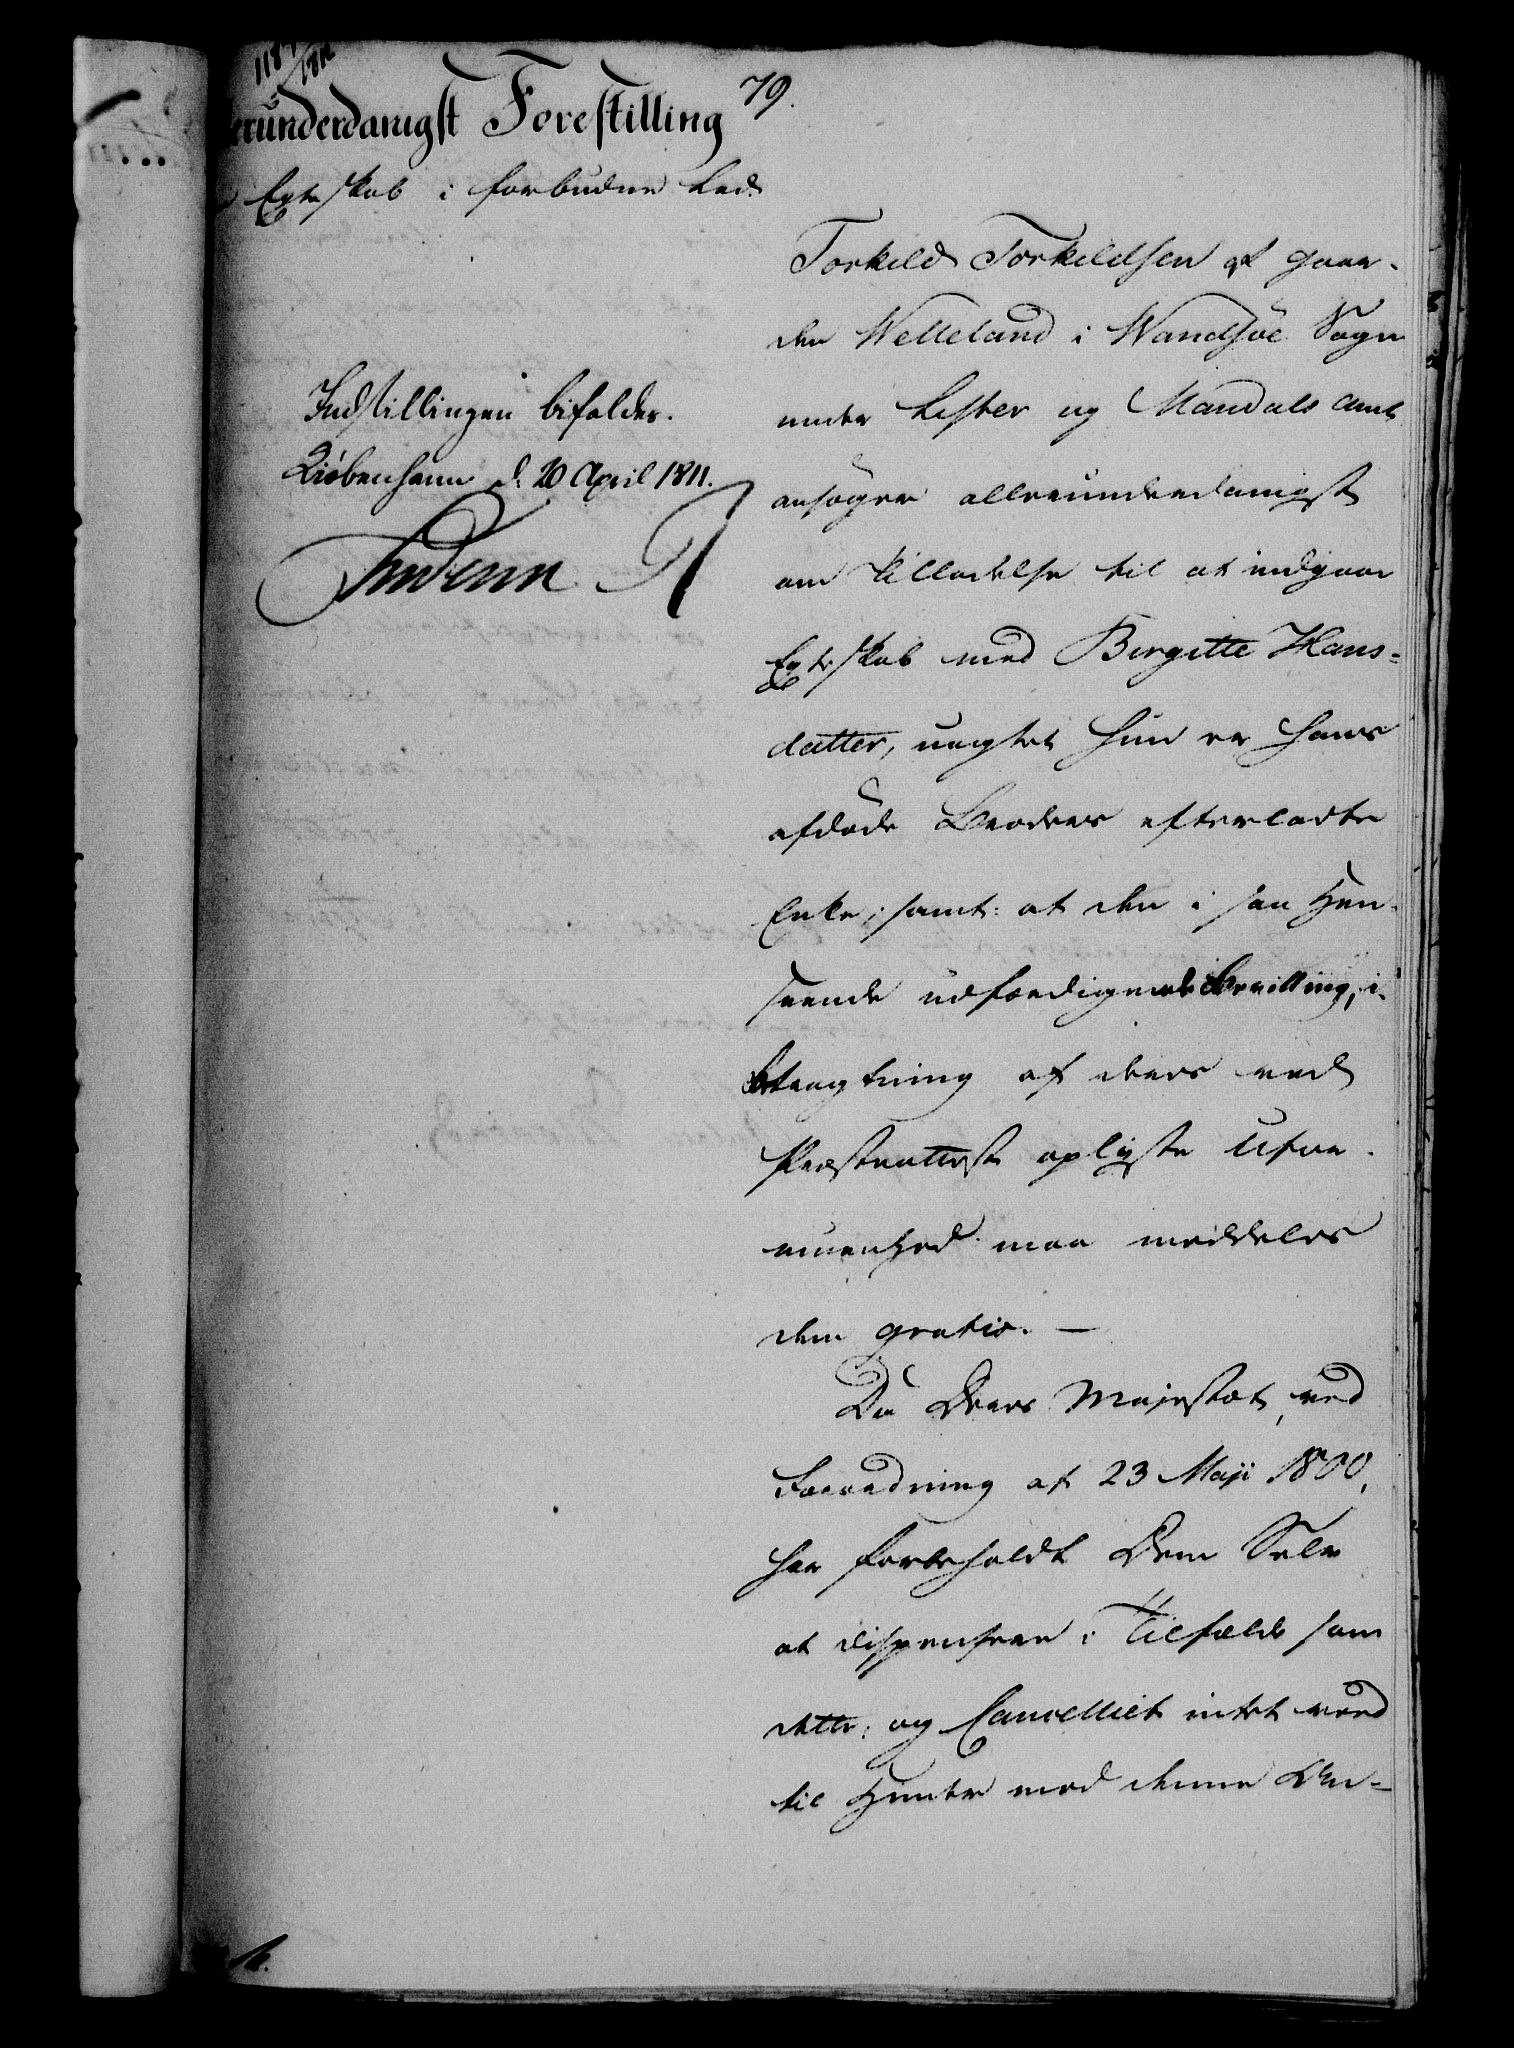 79.
erunderdanigst Forestilling
Egteskab i forbudne Led.
Indstillingen bifaldes.
Kiöbenhavn d. 20 April 1811.
Torkild Torkildsen af Gaar-
den Welleland i Wandsöe Sogn
under Lister og Mandals Amt
ansøger allerunderdanigst
om Tilladelse til at indgaae
Egteskab med Birgitte Hans-
datter, uagtet hun er hans
afdøde Broders efterladte
Enke; samt: at den i saa Hen-
seende udfærdigende Bevilling, i
Betragtning af deres ved
Præsteattest oplyste Ufor-
muenhed maa meddeles
dem gratis. —
Da Deres Majestæt, ved
Forordning af 23 Maji 1800,
har forbeholdt Dem Selv
at dispensere i Tilfælde som
dette; og Cancelliet intet veed
til Hinder med denne An-